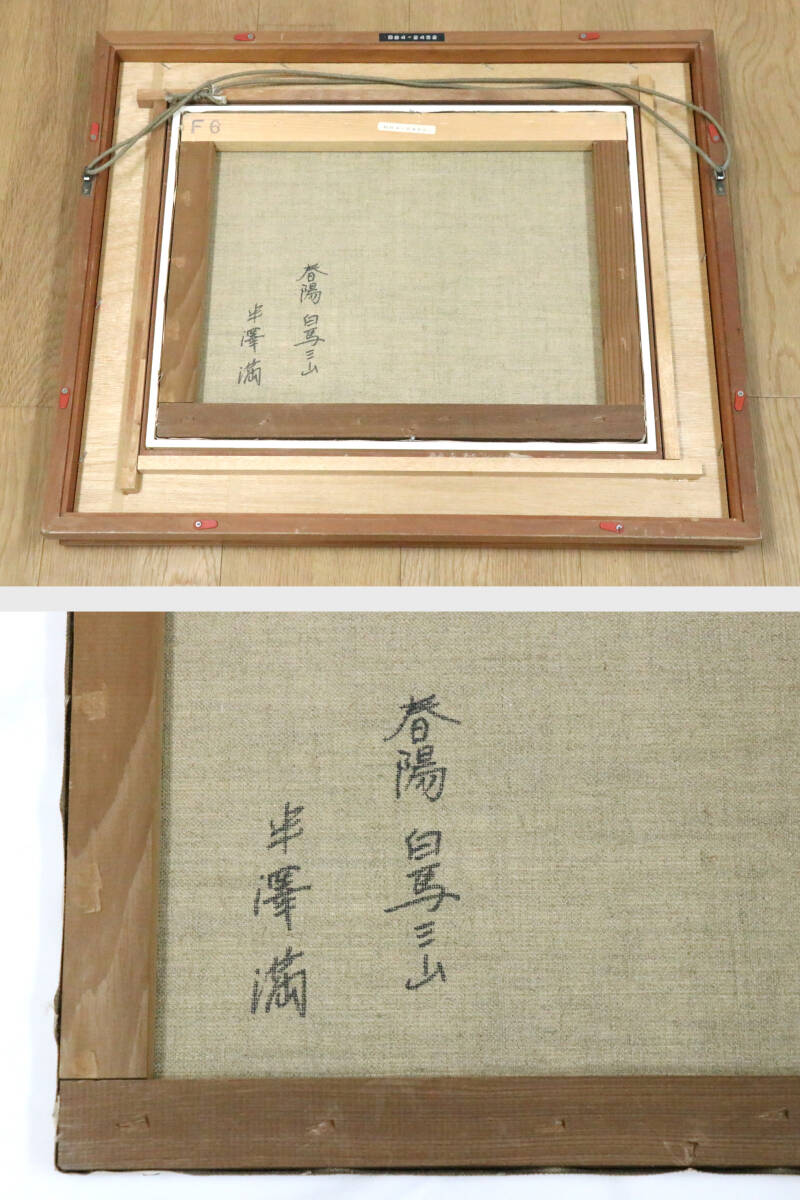 F6
春陽 白馬三山
半澤 満
春陽 白馬三山
半澤 満